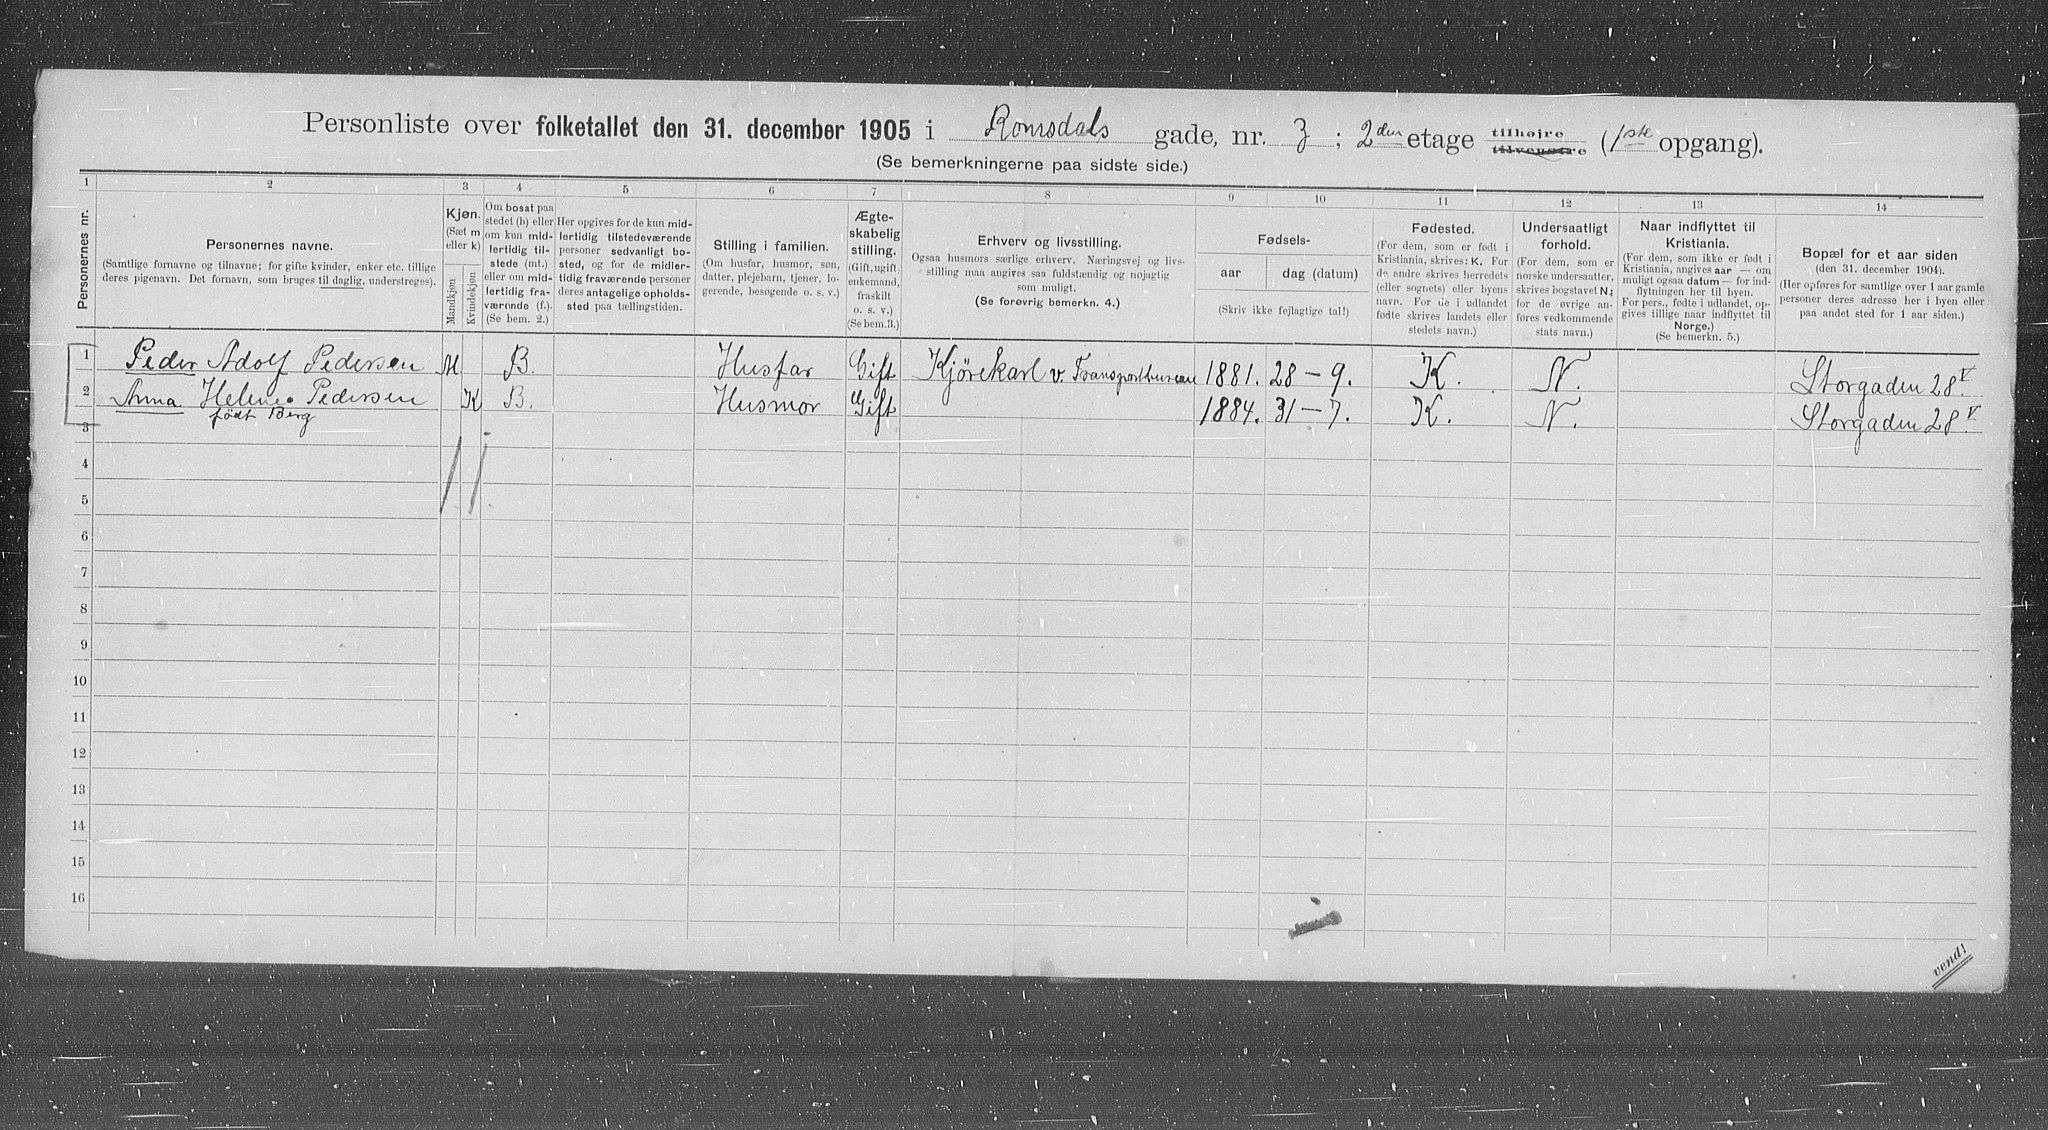 Personliste over folketallet den 31. december 1905 i Romsdals gade, nr. 3; 2den etage tilhøjre tilvenstre (1ste opgang).
(Se bemerkningerne paa sidste side.)
1 2 3 4 5 6 7 8 9 10 11 12 13 14
Personernes nr.
Personernes navne.
(Samtlige fornavne og tilnavne; for gifte kvinder, enker etc. tillige
deres pigenavn. Det fornavn, som bruges til daglig, understreges).
Kjøn.
(Sæt m
eller k)
Mandkjøn
Kvindekjøn
Om bosat paa
stedet (b) eller
om kun mid-
lertidig til-
stede (mt.)
eller om mid-
lertidig fra-
værende (f.).
(Se bem. 2.)
Her opgives for de kun mid-
lertidig tilstedeværende
personer sedvanlig bo-
sted, og for de midler-
tidig fraværende personer
deres antagelige opholds-
sted paa tællingstiden.
Stilling i familien.
(Om husfar, husmor, søn,
datter, plejebarn, tjener, lo-
gerende, besøgende o. s. v.)
Ægte-
skabelig
stilling.
(Gift, ugift,
enkemand,
fraskilt
o. s. v.)
(Se bem.3.)
Erhverv og livsstilling.
Ogsaa husmors særlige erhverv. Næringsvej og livs-
stilling maa angives saa fuldstændig og nøjagtig
som muligt.
(Se forøvrig bemerkn. 4.)
Fødsels-
aar dag (datum)
(Skriv ikke fejlagtige tal!)
Fødested.
(For dem, som er født i
Kristiania, skrives: K. For
de andre skrives herredets
(eller sognets) eller byens
navn. For de i udlandet
fødte skrives landets eller
stedets navn.)
Undersaatligt
forhold.
(For dem, som er
norske undersaatter,
skrives bogstavet N;
for de øvrige an-
føres vedkommende
stats navn.)
Naar indflyttet til
Kristiania.
(For dem, som ikke er født i
Kristiania, angives aar — om
muligt ogsaa datum — for ind-
flytningen her til byen.
For pers., fødte i udlandet, op-
gives tillige naar indflyttet til
Norge.)
(Se bemerkn. 5.)
Bopæl for et aar siden
(den 31. december 1904).
(Her opføres for samtlige over 1 aar gamle
personer deres adresse her i byen eller
paa andet sted for 1 aar siden.)
1 Peder Adolf Pedersen M B. Husfar Gift Kjørekarl v. Transportbureau 1881. 28-9. K. N. Storgaden 28 V.
2 Anna Helene Pedersen K B. Husmor Gift 1884. 31-7. K. N. Storgaden 28 V.
født Berg
3
4
5
6
7
8
9
10
11
12
13
14
15
16
vend!